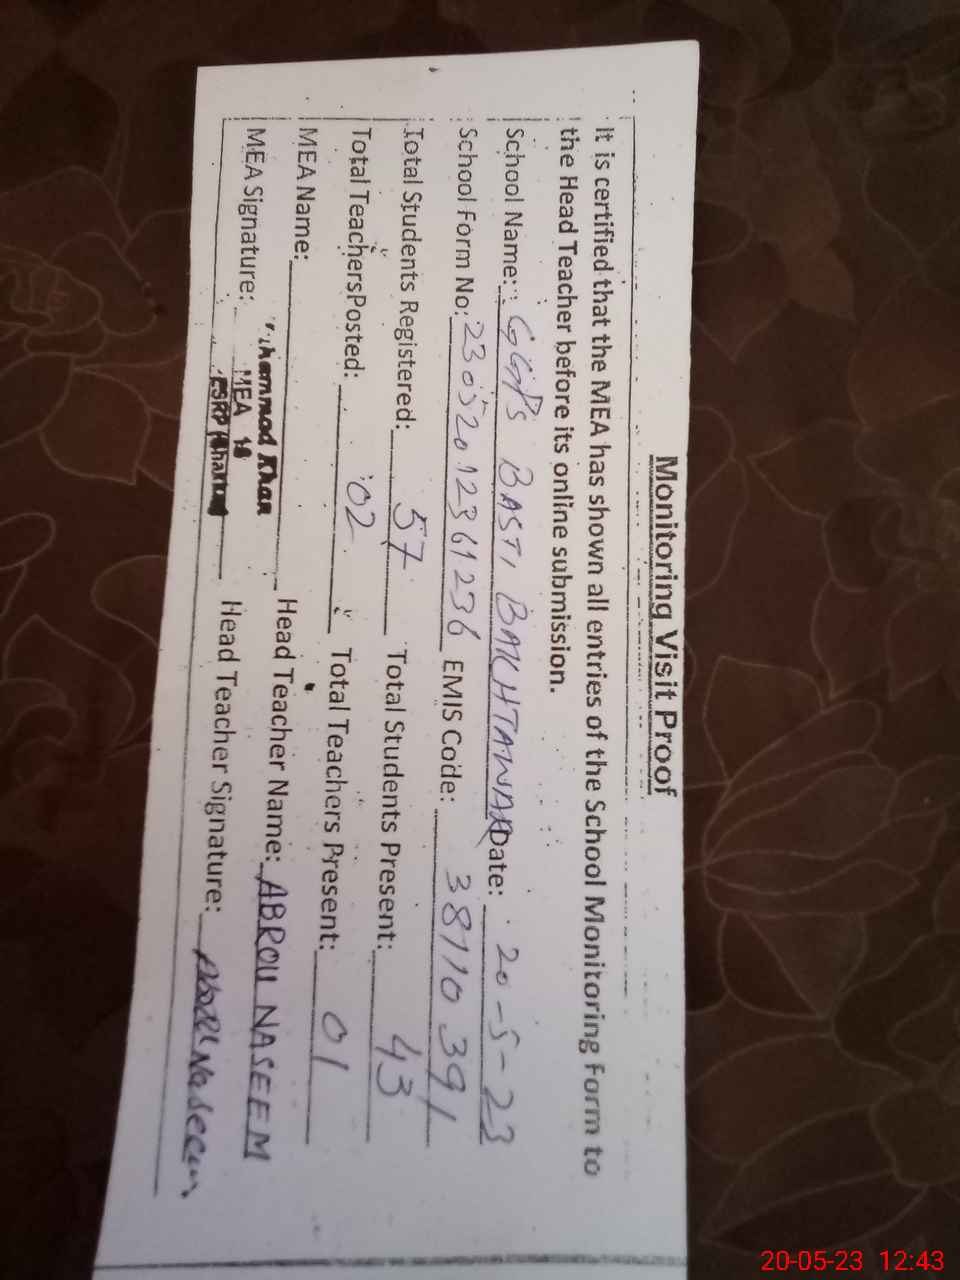 Monitoring Visit Proof
It is certified that the MEA has shown all entries of the School Monitoring Form to
the Head Teacher before its online submission.
School Name: GGPS BASTI BAKHTAWAR Date: 20-5-23
School Form No: 23052012361236 EMIS Code: 38110391
Total Students Registered: 57 Total Students Present: 43
Total Teachers Posted: 02 Total Teachers Present: 01
MEA Name: Head Teacher Name: ABROU NASEEM
MEA Signature: Khan Head Teacher Signature: Naseem
MEA 18
20-05-23 12:43